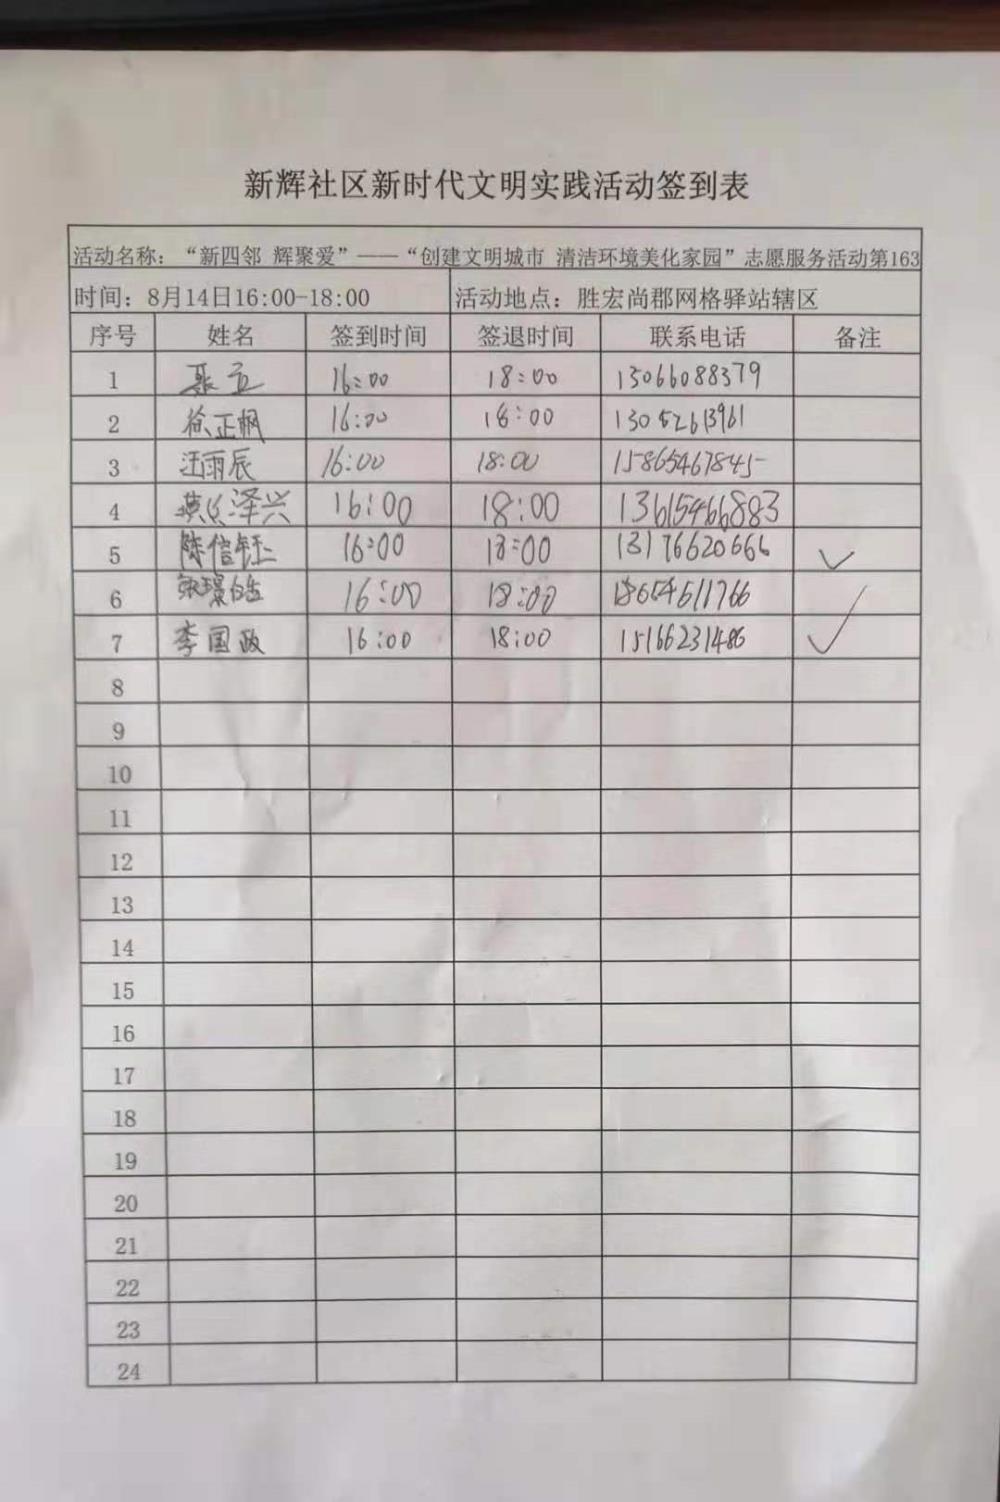 新辉社区新时代文明实践活动签到表
活动名称：“新四邻 辉聚爱”——“创建文明城市 清洁环境美化家园”志愿服务活动第163
时间：8月14日16:00-18:00 活动地点：胜宏尚郡网格驿站辖区
序号 姓名 签到时间 签退时间 联系电话 备注
1 16:00 18:00 15066088379
2 徐正帆 16:00 18:00 13052613961
3 汪雨辰 16:00 18:00 15865467845
4 燕泽兴 16:00 18:00 13615466883
5 陈信钰 16:00 18:00 13176620666 ✓
6 16:00 18:00 18654611766
7 李国政 16:00 18:00 15166231486 ✓
8
9
10
11
12
13
14
15
16
17
18
19
20
21
22
23
24